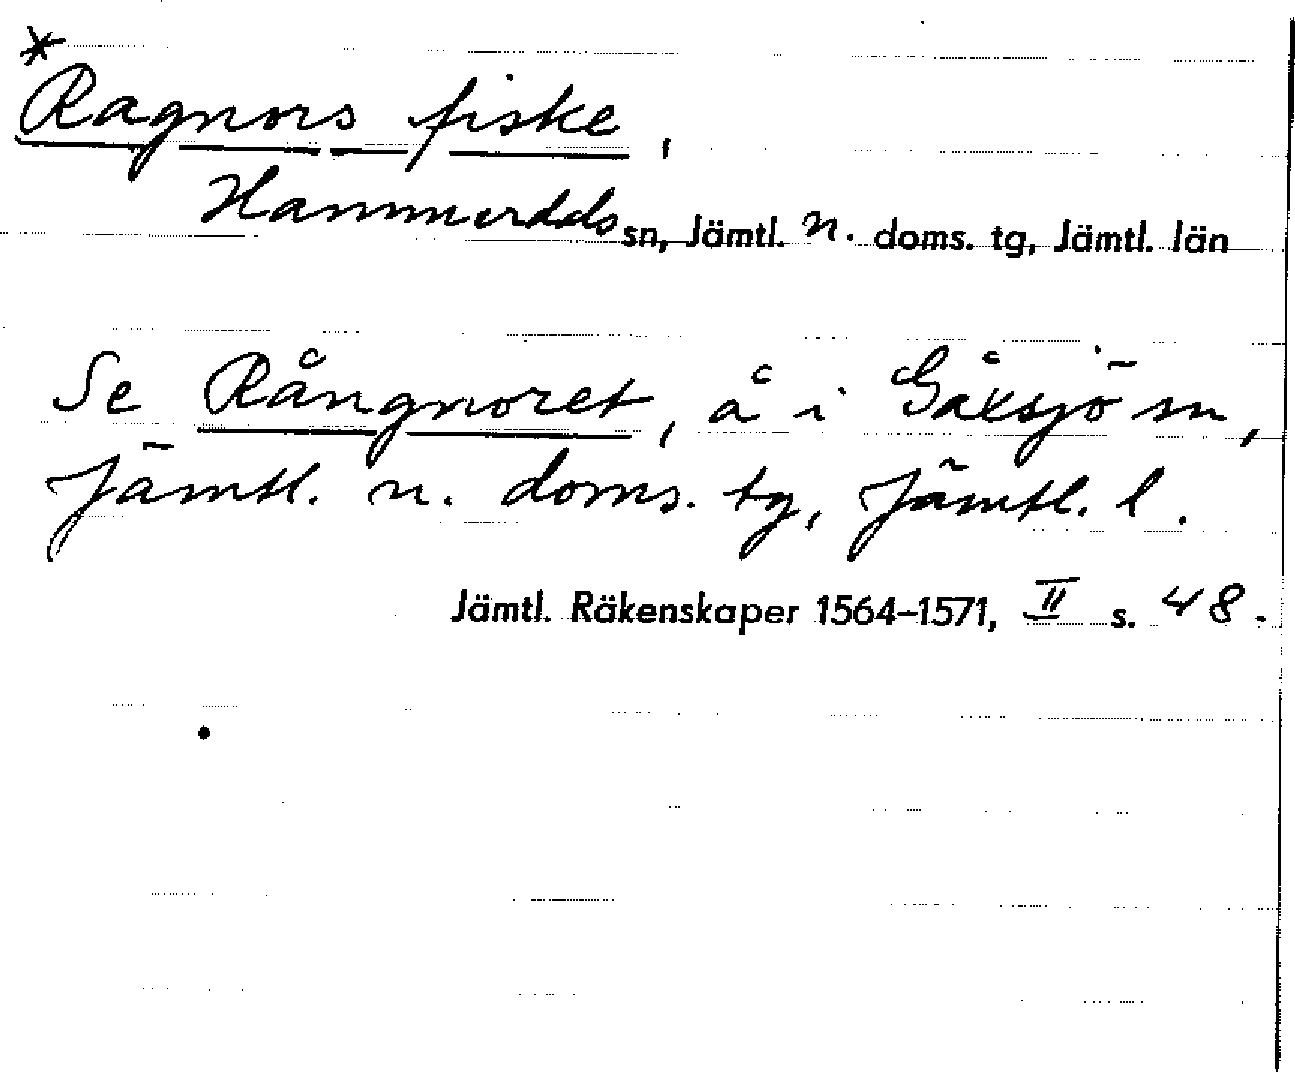 *
Ragnors fiske,
Hammerdals sn, Jämtl. n. doms. tg, Jämtl. län
Se Rångnoret, å i Gåxsjö sn,
Jämtl. n. doms. tg, Jämtl. l.
Jämtl. Räkenskaper 1564–1571, II s. 48.